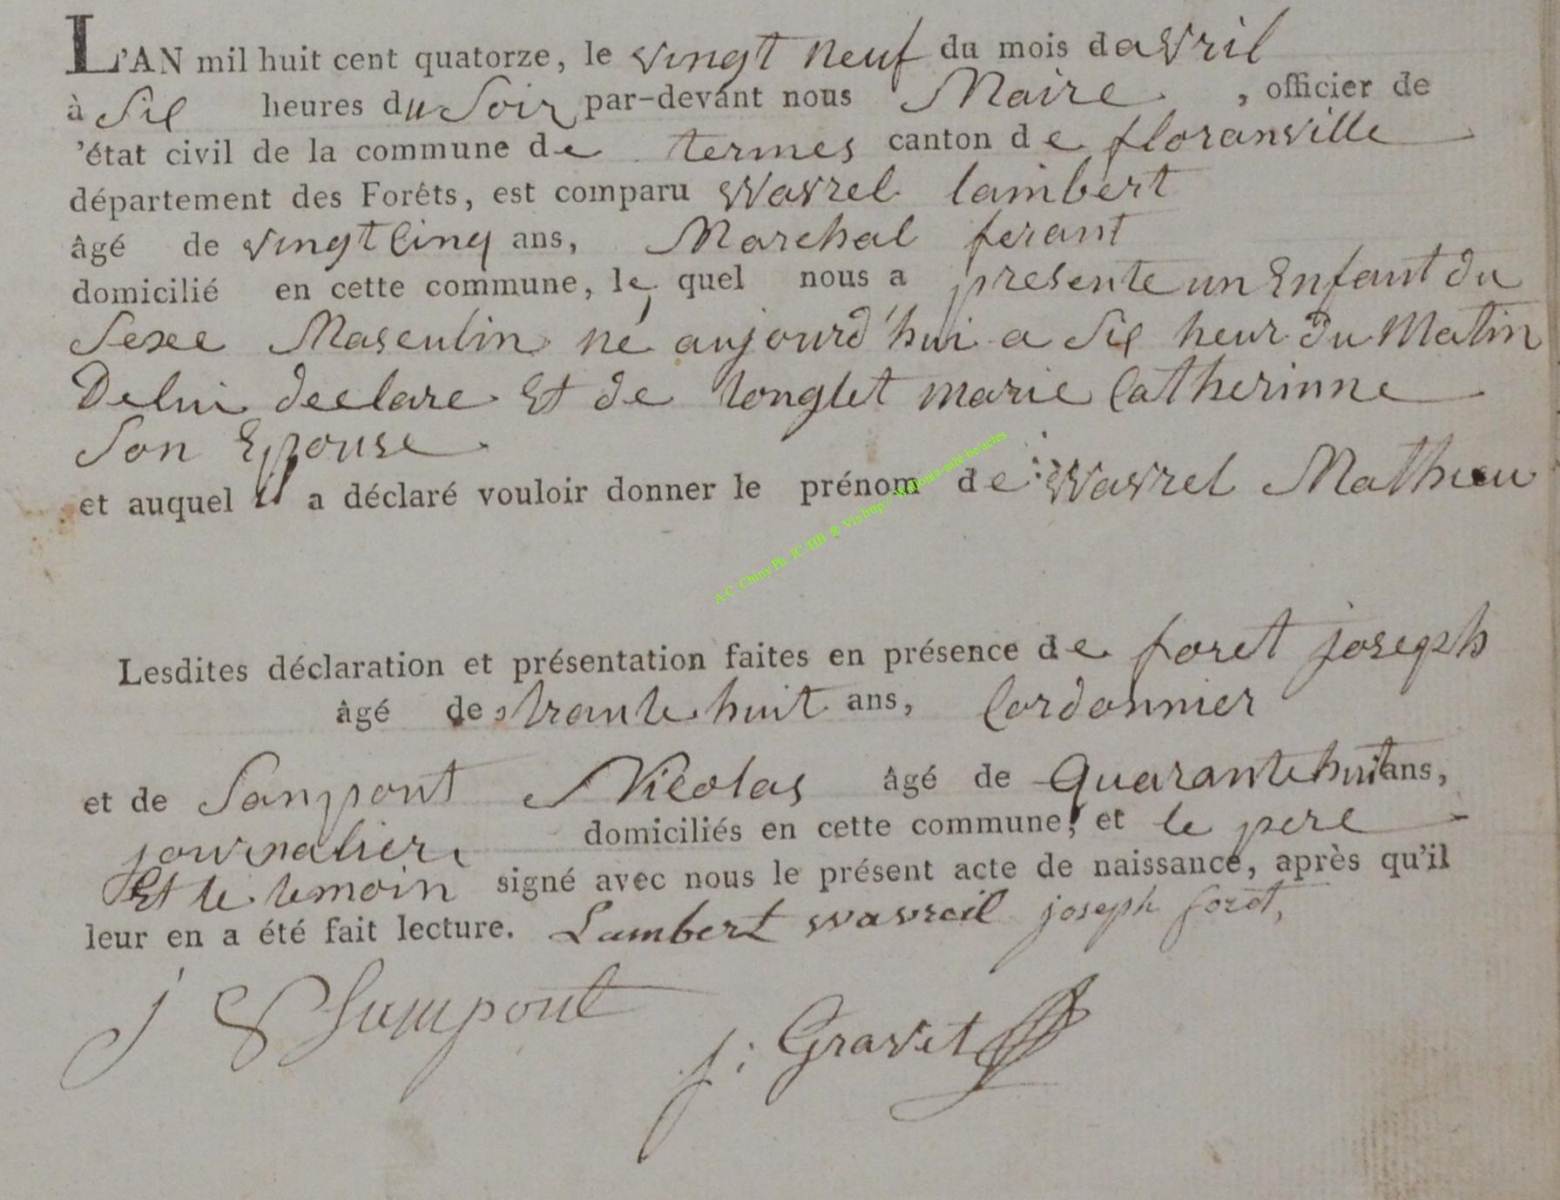 L'AN mil huit cent quatorze, le vingt neuf du mois davril
à Sil heures du Soir par-devant nous Maire , officier de
'état civil de la commune de termes canton de floranville
département des Forêts, est comparu Wavrel lambert
âgé de vingt Cinq ans, Marchal ferant
domicilié en cette commune, le quel nous a presente un Enfant du
Sexe Masculin né aujourd'hui a Sil heur du Matin
De lui declare Et de longlet marie Catherinne
Son Epouse
et auquel il a déclaré vouloir donner le prénom de Wavrel Mathieu
Lesdites déclaration et présentation faites en présence de foret joseph
âgé de trante huit ans, Cordonnier
et de Sanpont Nicolas âgé de Quarante huit ans,
journalier domiciliés en cette commune, et le pere
Et le temoin signé avec nous le présent acte de naissance, après qu'il
leur en a été fait lecture. Lambert wavreil joseph foret,
Sumpont
j: Gravet